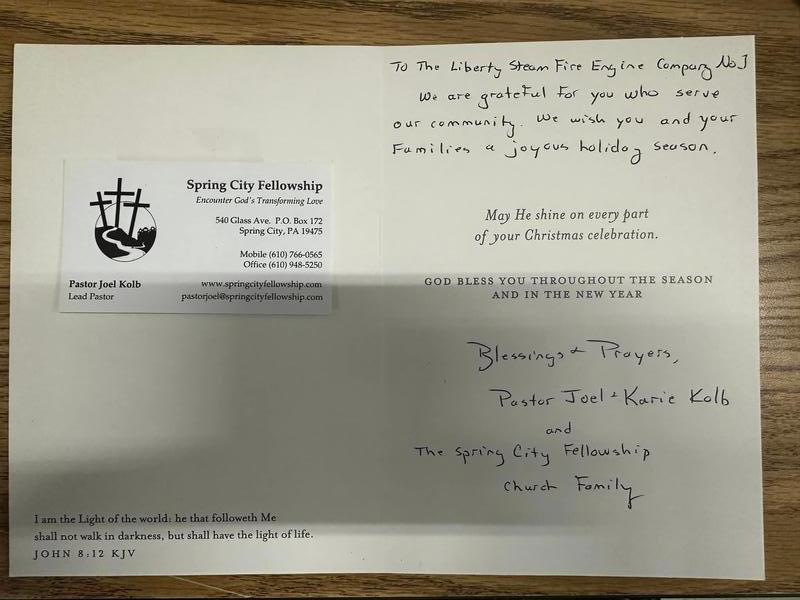 Spring City Fellowship
Encounter God's Transforming Love
540 Glass Ave. P.O. Box 172
Spring City, PA 19475
Mobile (610) 766-0565
Office (610) 948-5250
Pastor Joel Kolb
Lead Pastor
www.springcityfellowship.com
pastorjoel@springcityfellowship.com
I am the Light of the world: he that followeth Me
shall not walk in darkness, but shall have the light of life.
JOHN 8:12 KJV
To The Liberty Steam Fire Engine Company No 1
We are grateful for you who serve
our community. We wish you and your
Families a joyous holiday season.
May He shine on every part
of your Christmas celebration.
GOD BLESS YOU THROUGHOUT THE SEASON
AND IN THE NEW YEAR
Blessings + Prayers,
Pastor Joel + Karie Kolb
and
The Spring City Fellowship
Church Family